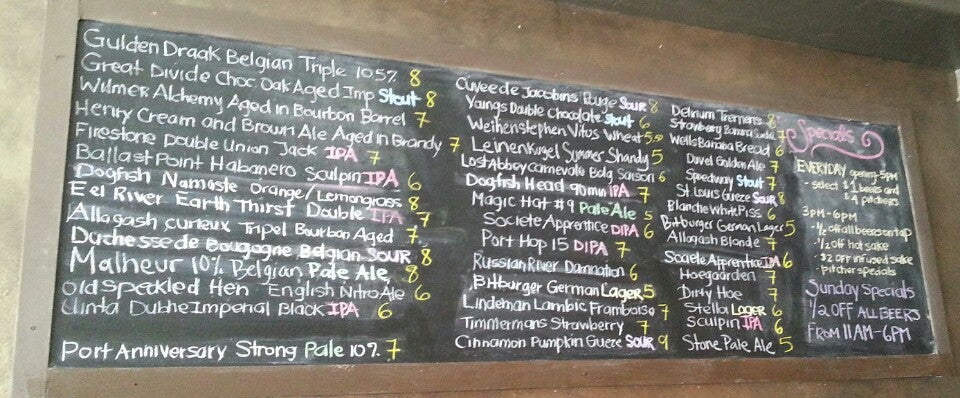 Gulden Draak Belgian Triple 10.5% 8
Great Divide Choc Oak Aged Imp Stout 8
Wilmer Alchemy Aged in Bourbon Barrel 7
Henry Cream and Brown Ale Aged in Brandy 7
Firestone Double Union Jack IPA 7
Ballast Point Habanero Sculpin IPA 6
Dogfish Namaste Orange/Lemongrass 8
Eel River Earth Thirst Double IPA 7
Allagash curieux Tripel Bourbon Aged 7
Duchesse de Bourgogne Belgian SOUR 8
Malheur 10% Belgian Pale Ale 8
Old Speckled Hen English Nitro Ale 6
Dubhe Imperial Black IPA 6
Port Anniversary Strong Pale 10% 7
Cuveede Jacobins Rouge SOUR 8
Youngs Double Chocolate Stout 6
Weihenstephen Vitus Wheat 5.50
Leinenkugel Summer Shandy 5
Lost Abbey Carnevale Belg Saison 6
Dogfish Head 90min IPA 7
Magic Hat #9 Pale Ale 5
Societe Apprentice DIPA 6
Port Hop 15 DIPA 7
Russian River Damnation 6
Bitburger German Lager 5
Lindeman Lambic Framboise 7
Timmermans Strawberry 7
Cinnamon Pumpkin Gueze SOUR 9
Delirium Tremens 8
Strawberry Banana 7
Wells Banana Bread 6
Duvel Golden Ale 7
Speedway Stout 7
St. Louis Gueze SOUR 8
Blanche White Piss 6
Bitburger German Lager 5
Allagash Blonde 7
Sociele Apprentice IPA 6
Hoegaarden 7
Dirty Hoe 7
Stella Lager 6
Sculpin IPA 6
Stone Pale Ale 5
Specials
EVERYDAY opening-5pm
- select $1 beers and
4 pitchers
3PM-6PM
- 1/2 off all beers on tap
- 1/2 off hot sake
- $2 off infused sake
- pitcher specials
Sunday Specials
1/2 OFF ALL BEERS
FROM 11AM-6PM